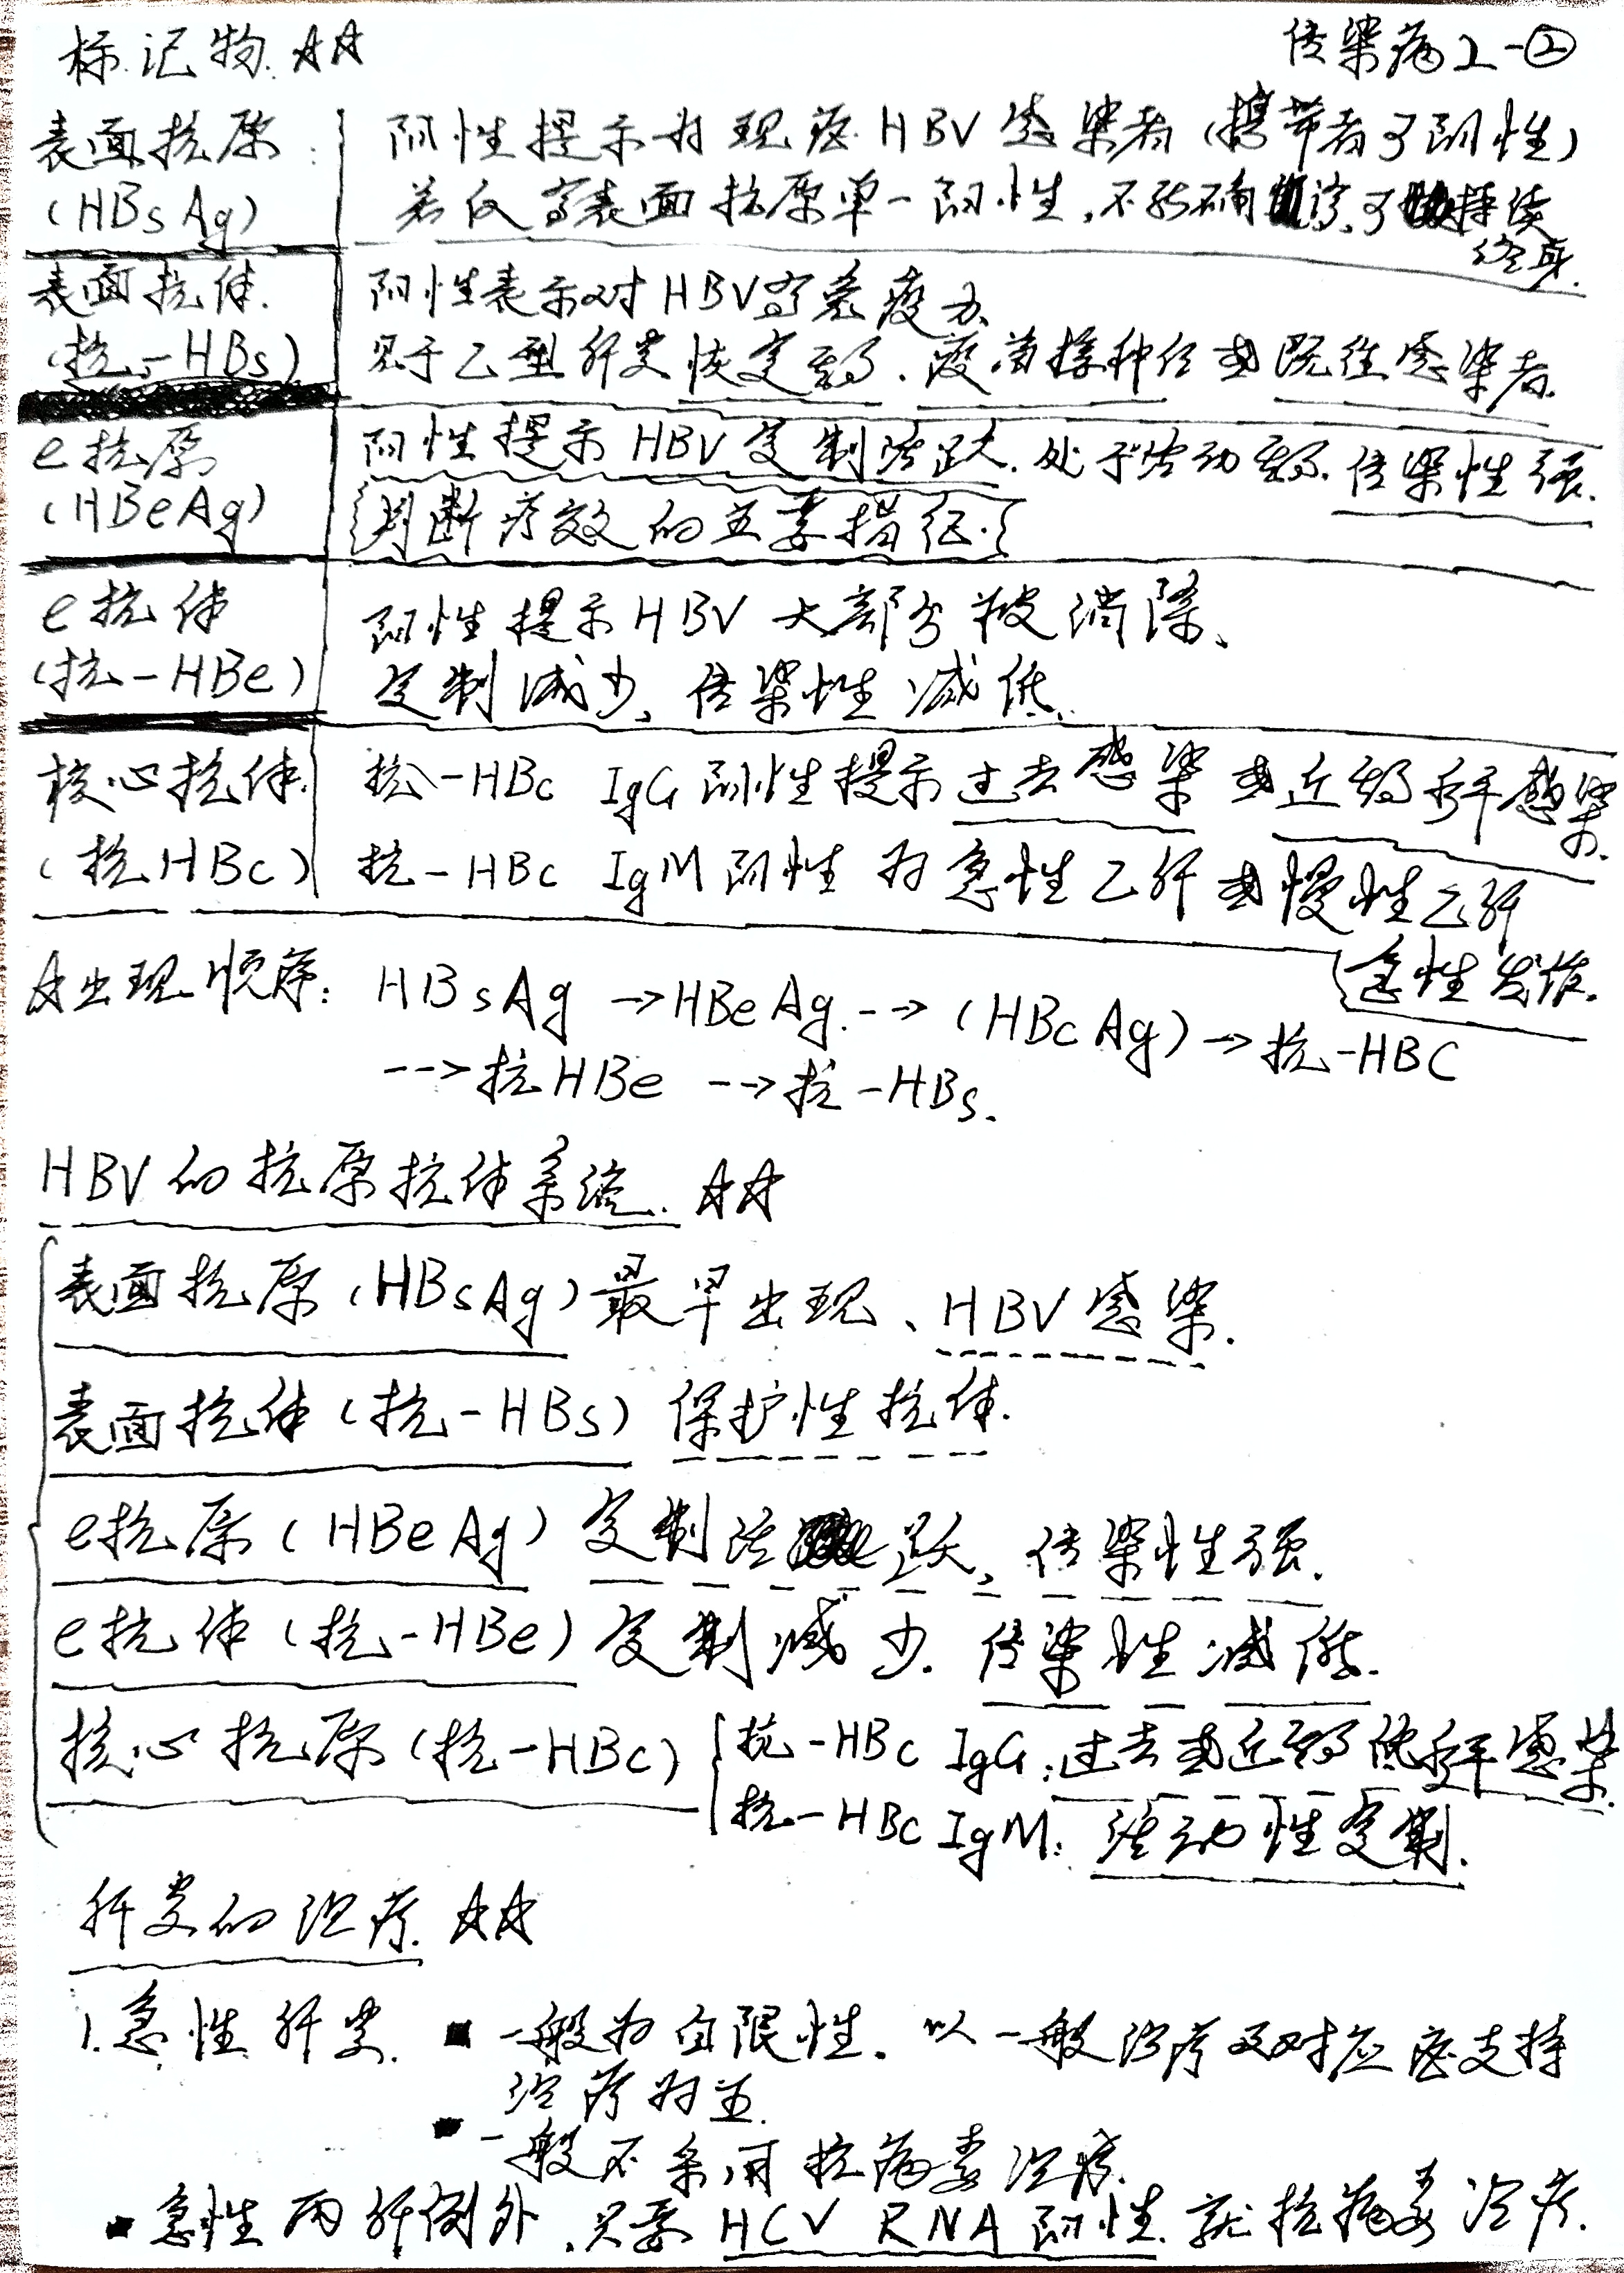 标记物 ☆☆
传染病2-②
表面抗原 (HBsAg)
阳性提示为现症HBV感染者(携带者可阳性)
若仅高表面抗原单一阳性,不能确诊,可持续终身.
表面抗体. (抗-HBs)
阳性表示对HBV高免疫力、
见于乙型肝炎恢复期、疫苗接种后或既往感染者.
e抗原 (HBeAg)
阳性提示HBV复制活跃.处于活动期.传染性强.
判断疗效的主要指征.
e抗体 (抗-HBe)
阳性提示HBV大部分被消除、
复制减少、传染性减低、
核心抗体. (抗HBc)
抗-HBc IgG 阳性提示过去感染或近期水平感染.
抗-HBc IgM 阳性为急性乙肝或慢性乙肝
急性发作.
☆出现顺序: HBsAg → HBeAg --→ (HBcAg) → 抗-HBC
--→ 抗HBe --→ 抗-HBs.
HBV的抗原抗体系统. ☆☆
表面抗原(HBsAg)最早出现、HBV感染.
表面抗体(抗-HBs) 保护性抗体.
e抗原(HBeAg) 复制活跃、传染性强.
e抗体(抗-HBe) 复制减少.传染性减低.
核心抗原(抗-HBc)
抗-HBc IgG:过去或近期低水平感染.
抗-HBc IgM: 活动性复制.
肝炎的治疗. ☆☆
1.急性肝炎. ■ 一般为自限性.以一般治疗及对应症支持
治疗为主.
■ 一般不采用抗病毒治疗.
■ 急性丙肝例外,只要HCV RNA阳性.就抗病毒治疗.